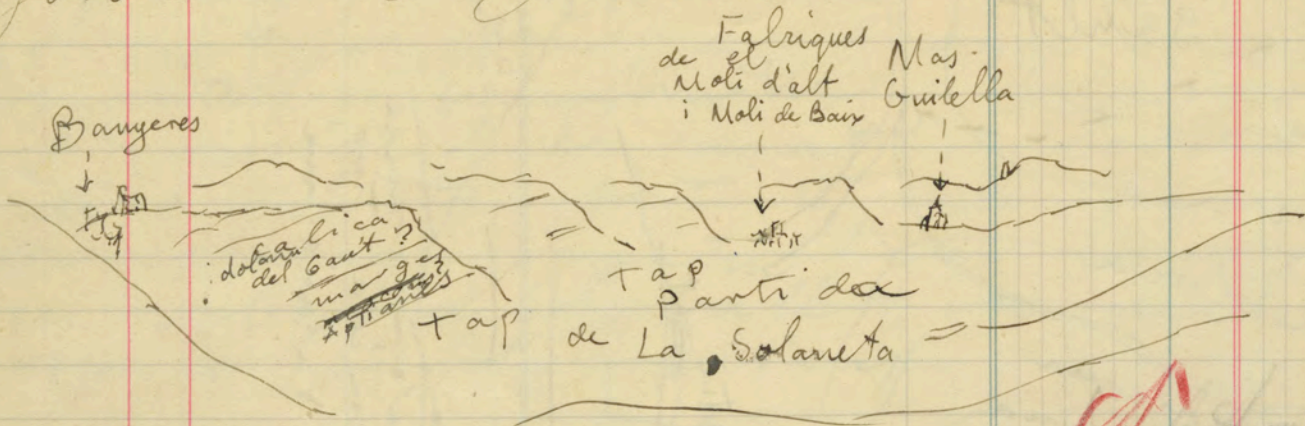 Banyeres
Fabriques
de el
Moli d'alt
i Moli de Baix
Mas
Guilella
calica
dolom
del Gaut?
marges
Aptianes
tap
tap
Partida
de La Solaneta